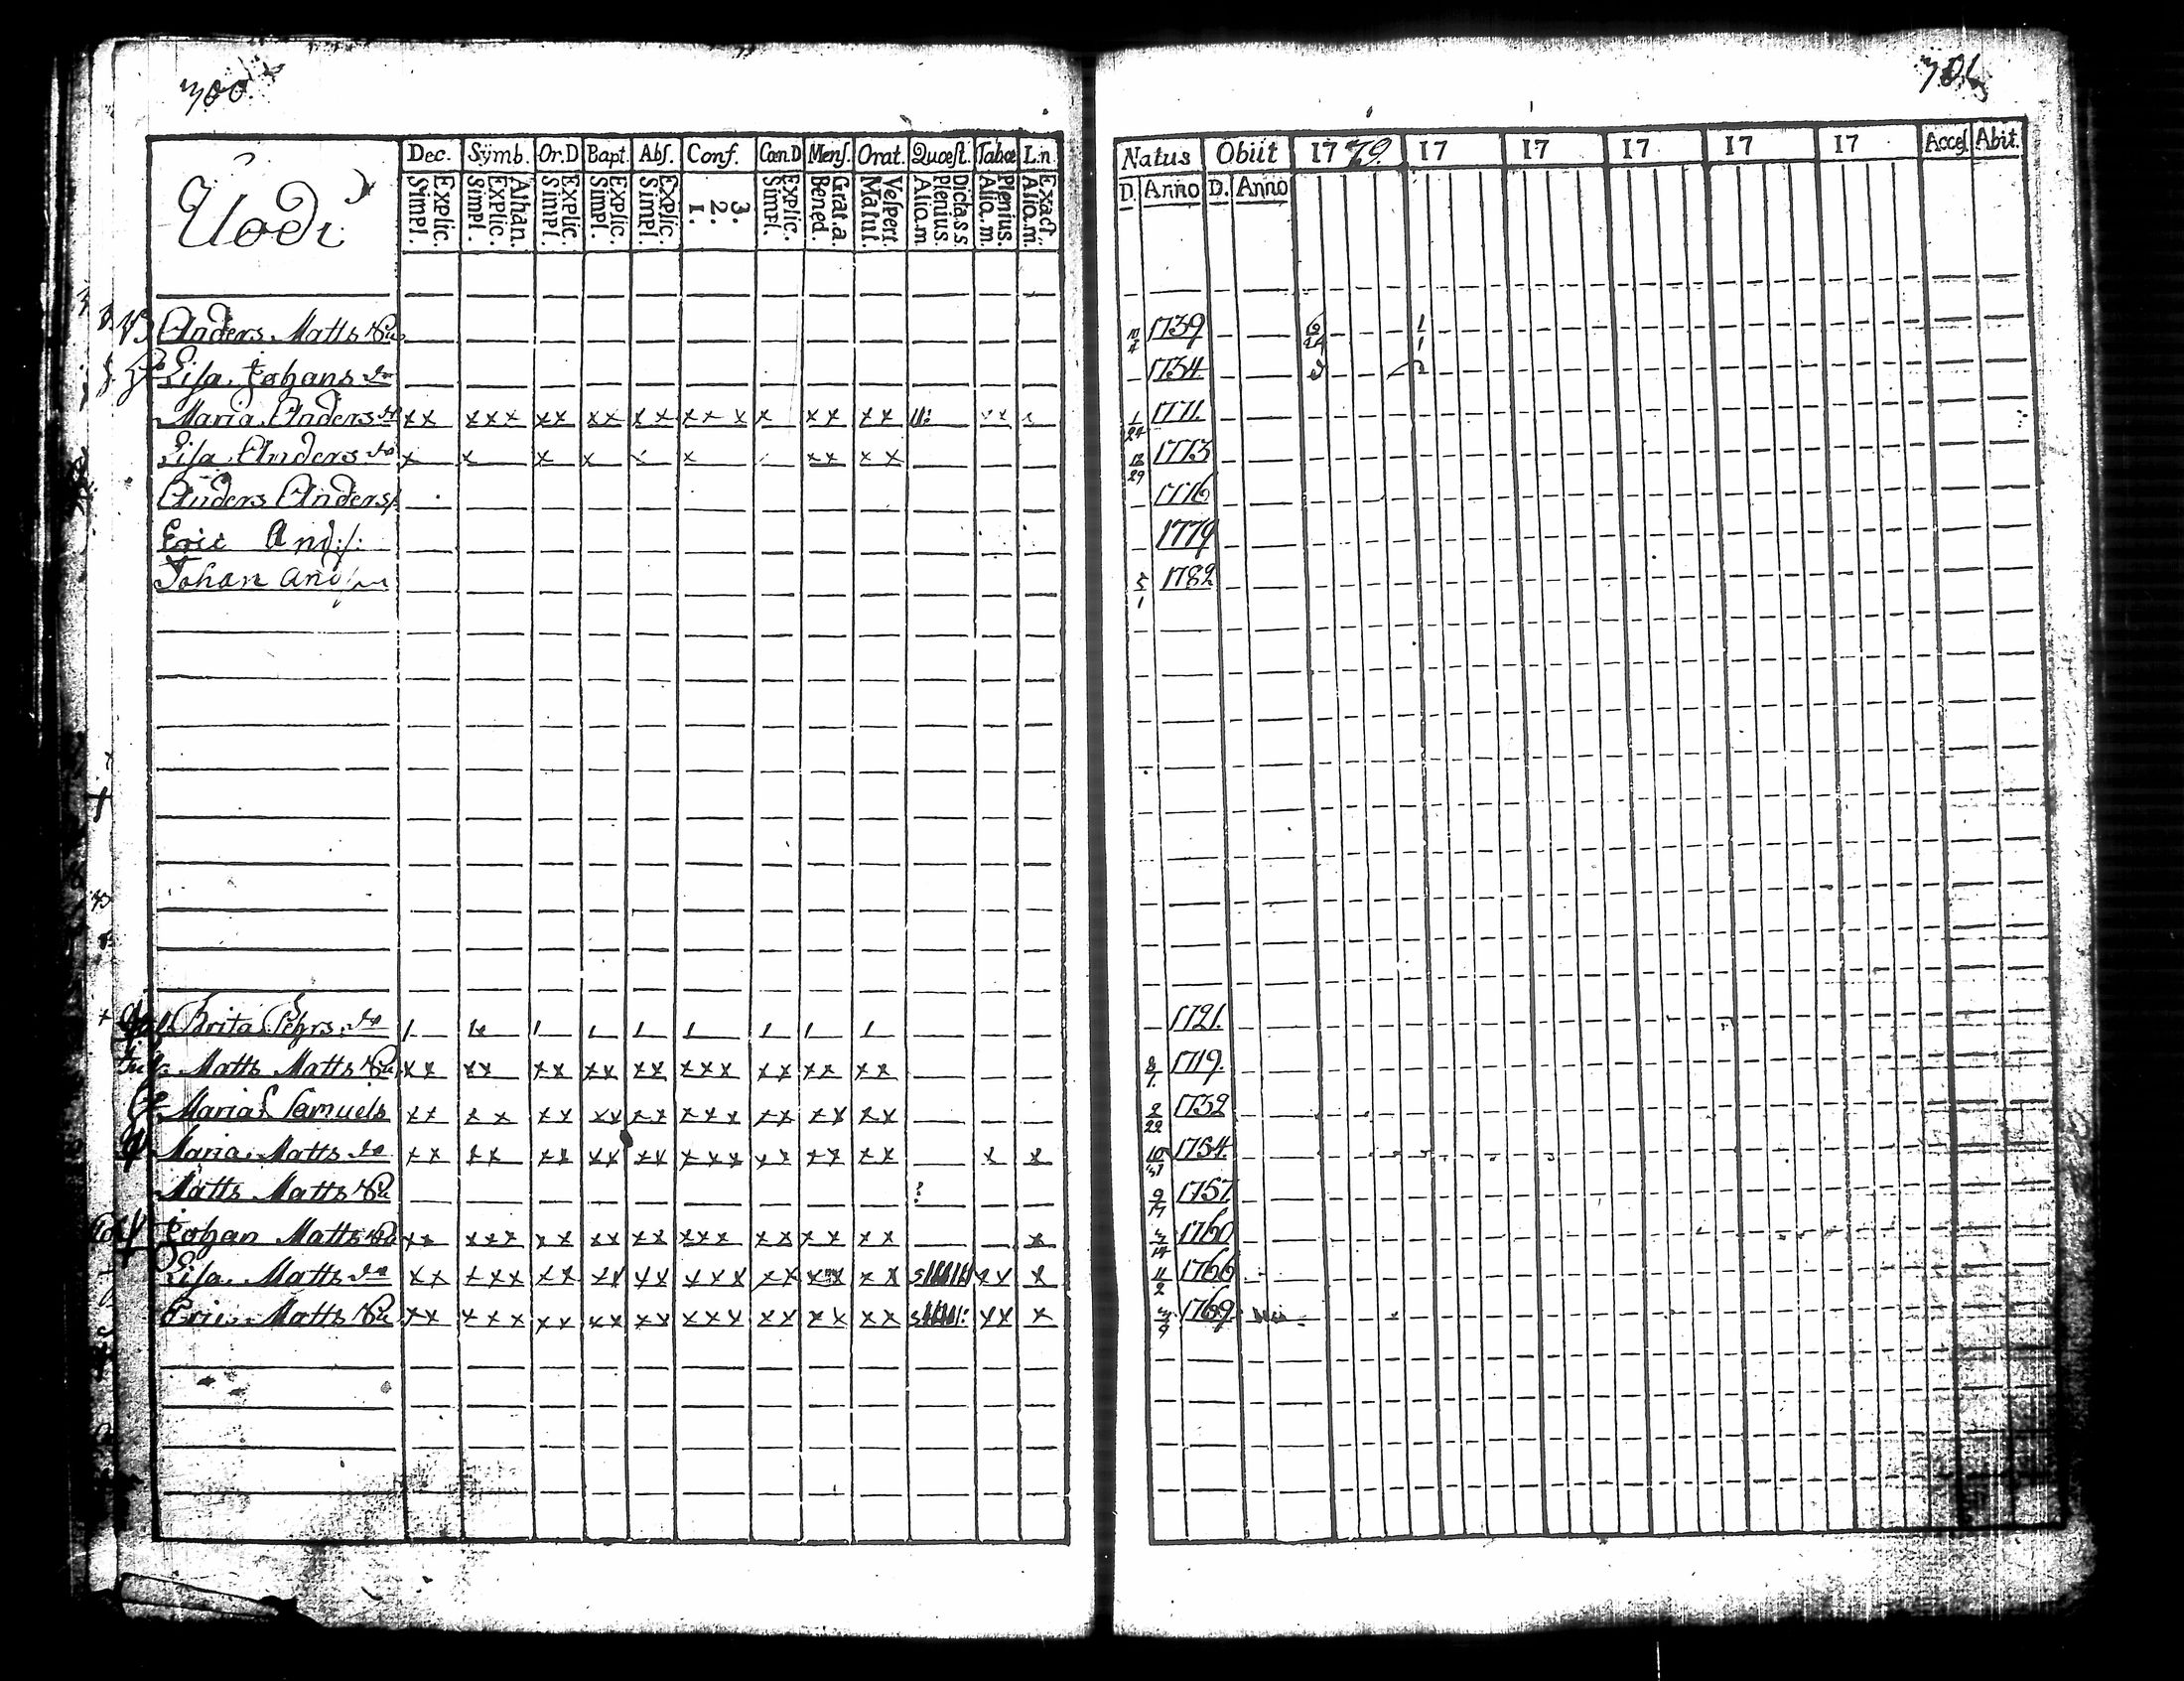 300
301
Uodi
Dec. Symb. Or.D Bapt. Abſ. Conf. Cœn.D Menſ. Orat. Quœſt. Tabœ L.n.
Explic. Simpl. Athan. Explic. Simpl. Explic. Simpl. Explic. Simpl. Explic. Simpl. 3. 2. 1. Explic. Simpl. Grat.a. Bened. Veſpert. Matut. Dicta s s Plenius. Alio.m Plenius. Alio.m. Exact. Alio.m.
Natus Obiit 1779. 17 17 17 17 17 Acceſ. Abit.
D. Anno D. Anno
Anders Matts 1739
Liſa Johans 1734
Maria Anders xx xxx xx xx xx xxx x xx xx 1/24 1771.
Liſa Anders x x x x x x xx xx 1773
Anders Anders 1776
Eric And 1779
Johan And 5/1 1782
Brita Pehrs 1721.
Matts Matts xx xx xx xx xx xxx xx xx xx 1719.
Maria Samuels xx xx xx xx xx xxx xx xx xx 2/22 1732
Maria Matts xx xx xx xx xx xxx xx xx xx x x 1754.
Matts Matts 1757
Johan Matts xx xxx xx xx xx xxx xx xx xx x 1760
Liſa Matts xx xxx xx xx xx xxx xx xx xx xx x 11/2 1766
Eric Matts xx xxx xx xx xx xxx xx xx xx xx x 3/9 1769